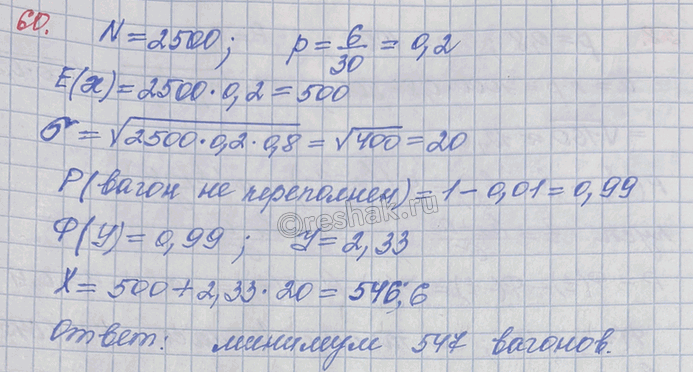 60. N = 2500; p = 6/30 = 0,2
E(x) = 2500·0,2 = 500
σ = √(2500·0,2·0,8) = √400 = 20
P(вагон не переполнен) = 1 - 0,01 = 0,99
Ф(У) = 0,99; У = 2,33
X = 500 + 2,33·20 = 546,6
Ответ: минимум 547 вагонов.
©reshak.ru